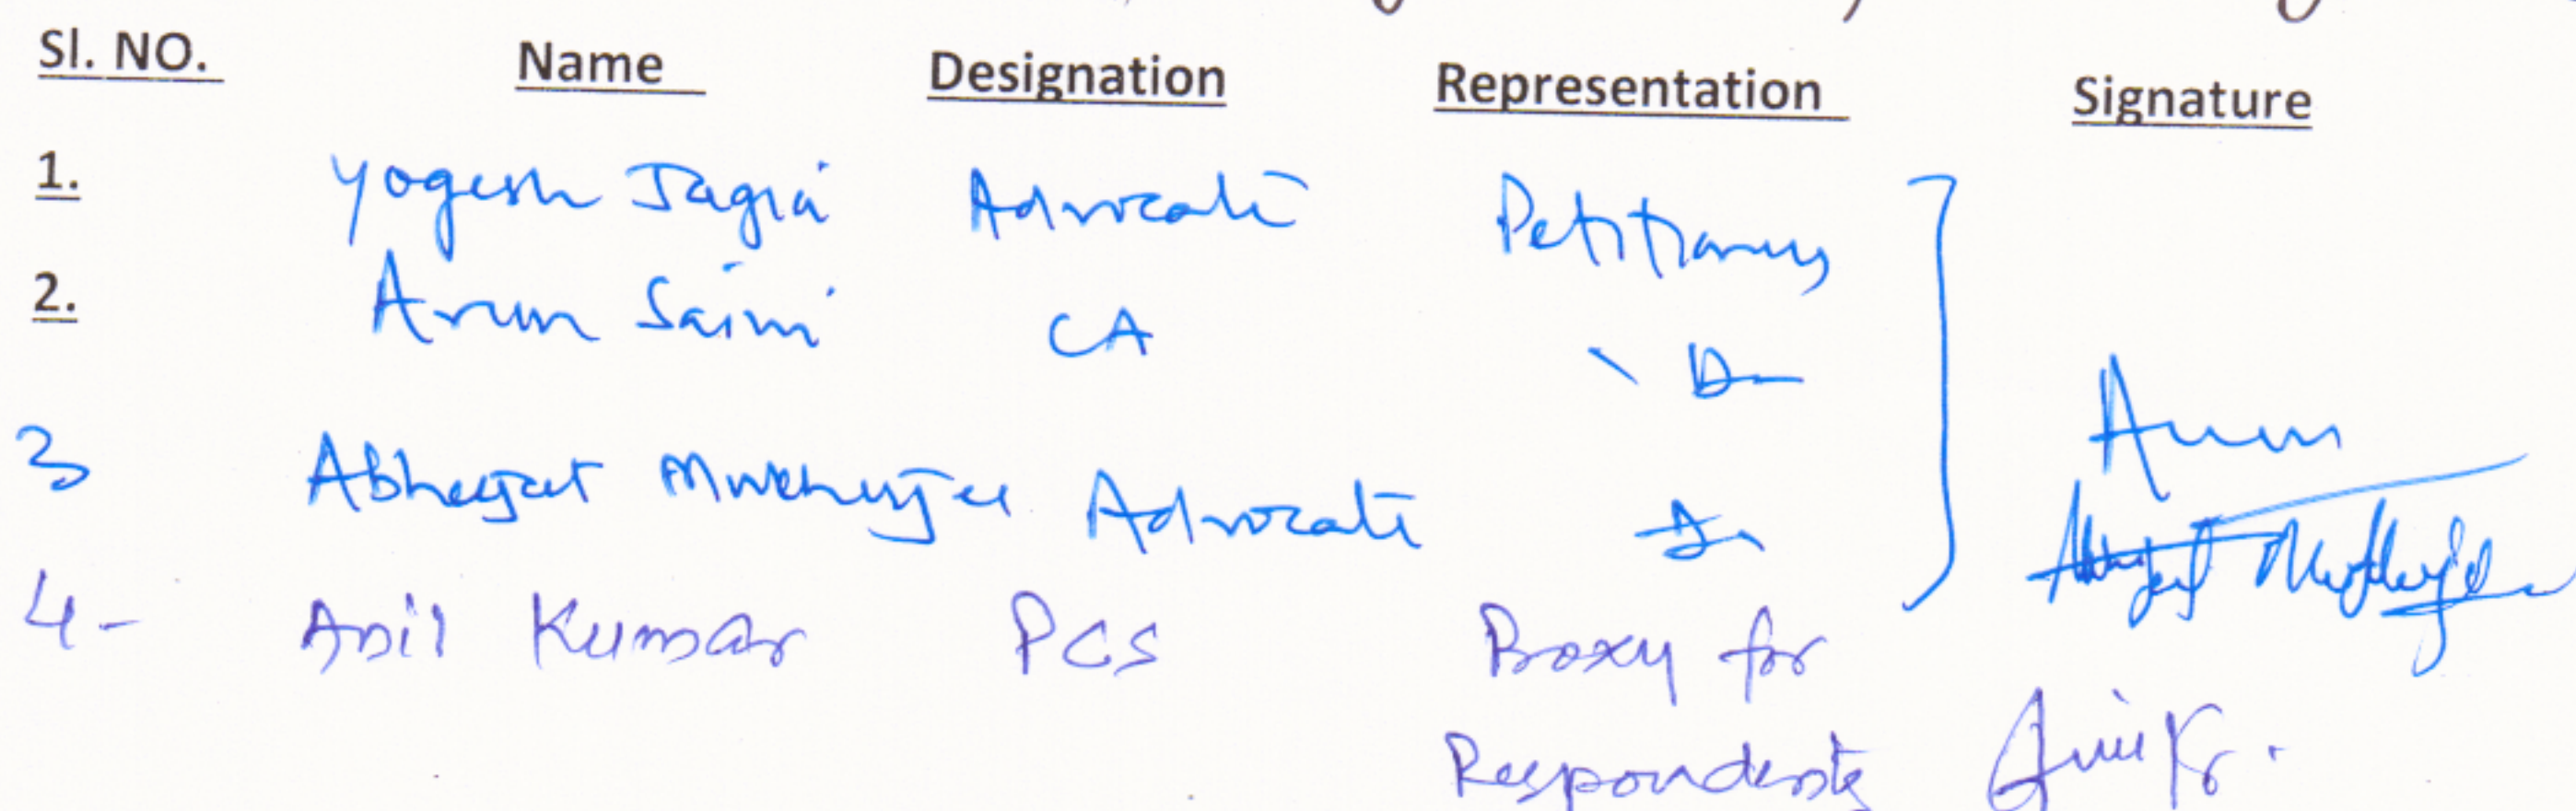 Sl. NO. Name Designation Representation Signature
1. Yogesh Jagia Advocate Petitioners
2. Arun Saini CA Do
3 Abhijat Mukherjee Advocate Do Arun
4- Anil Kumar PCS Proxy for
Respondents Anil Kr.